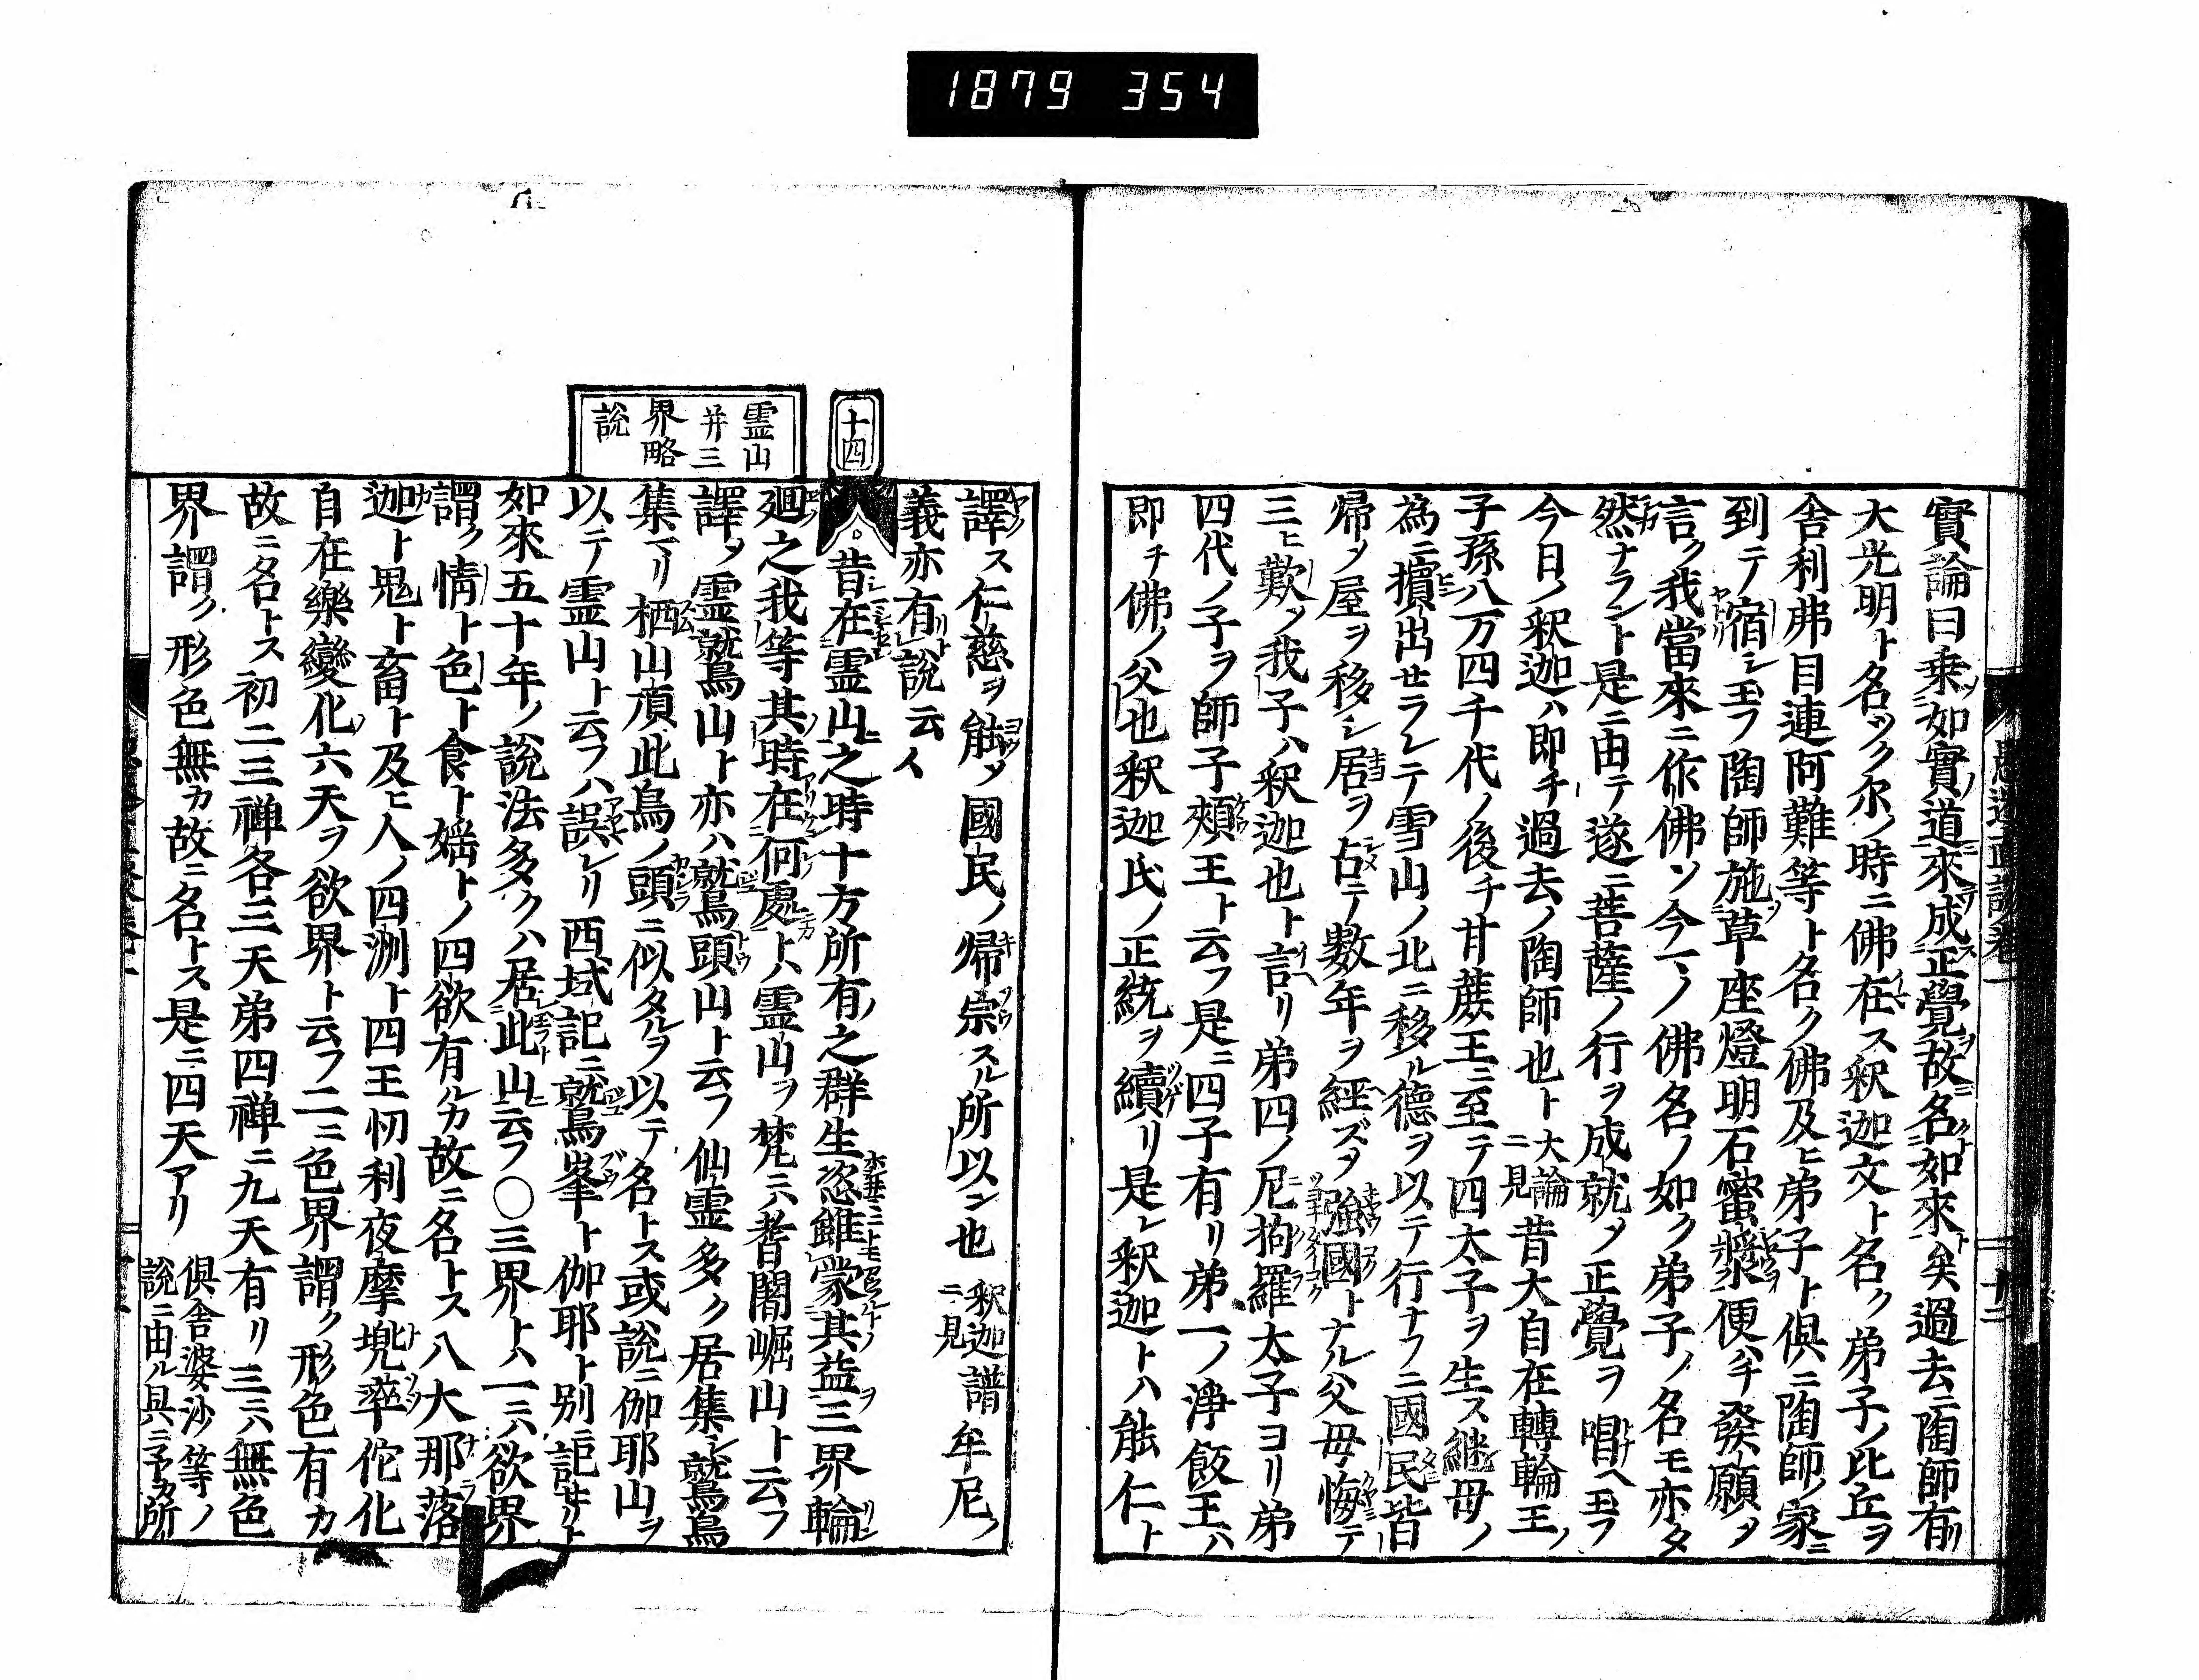 1879 354
實論曰乗如實道來成正覺故名如來矣過去ニ陶師有リ
大光明ト名ツク尓ノ時ニ佛在ス釈迦文ト名ク弟子ノ比丘ヲ
舎利弗目連阿難等ト名ク佛及ヒ弟子ト倶ニ陶師ノ家ニ
到テ宿シ玉フ陶師施草座燈明石蜜漿便ハチ發願メ
言ク我當來ニ作佛ソ今ノ佛名ノ如ク弟子ノ名モ亦タ
然ナラント是ニ由テ遂ニ菩薩ノ行ヲ成就メ正覺ヲ唱ヘ玉フ
今日ノ釈迦ハ即チ過去ノ陶師也ト大論ニ見昔大自在轉輪王ノ
子孫八万四千代ノ後チ甘蔗王ニ至テ四太子ヲ生ス継母ノ
為ニ擯出セラレテ雪山ノ北ニ移ル德ヲ以テ行ナフニ國民皆
帰メ屋ヲ移シ居ヲ占テ數年ヲ経ズメ強國トナル父母悔テ
三ヒ歎メ我子ハ釈迦也ト言リ弟四ノ尼拘羅太子ヨリ弟
四代ノ子ヲ師子頰王ト云フ是ニ四子有リ弟一ノ淨飯王ハ
即チ佛ノ父也釈迦氏ノ正統ヲ續リ是レ釈迦トハ能仁ト
譯ス仁慈ヲ能メ國民ノ帰宗スル所以ン也釈迦譜ニ見牟尼ノ
義亦有説云々
十四
昔在霊山之時十方所有之群生恣雖蒙其益三界輪
廻之我等其時在何處トハ霊山ヲ梵ニハ耆闍崛山ト云フ
譯メ霊鷲山ト亦ハ鷲頭山ト云フ仙霊多ク居集シ鷲鳥
集マリ栖山頂此鳥ノ頭ニ似タルヲ以テ名トス或説ニ伽耶山ヲ
以テ霊山ト云フハ誤レリ西域記ニ鷲峯ト伽耶ト別ニ記せリト
如來五十年ノ説法多クハ居此山云フ〇三界トハ一ニハ欲界
謂ク情ト色ト食ト婬トノ四欲有ルカ故ニ名トス八大那落
迦ト鬼ト畜ト及ヒ人ノ四洲ト四王忉利夜摩兜率佗化
自在樂變化六天ヲ欲界ト云フ二ニ色界謂ク形色有カ
故ニ名トス初二三禅各三天弟四禅ニ九天有リ三ニハ無色
界謂ク形色無カ故ニ名トス是ニ四天アリ倶舎婆沙等ノ説ニ由ル具ニ予カ所
霊山
并三
界略
説